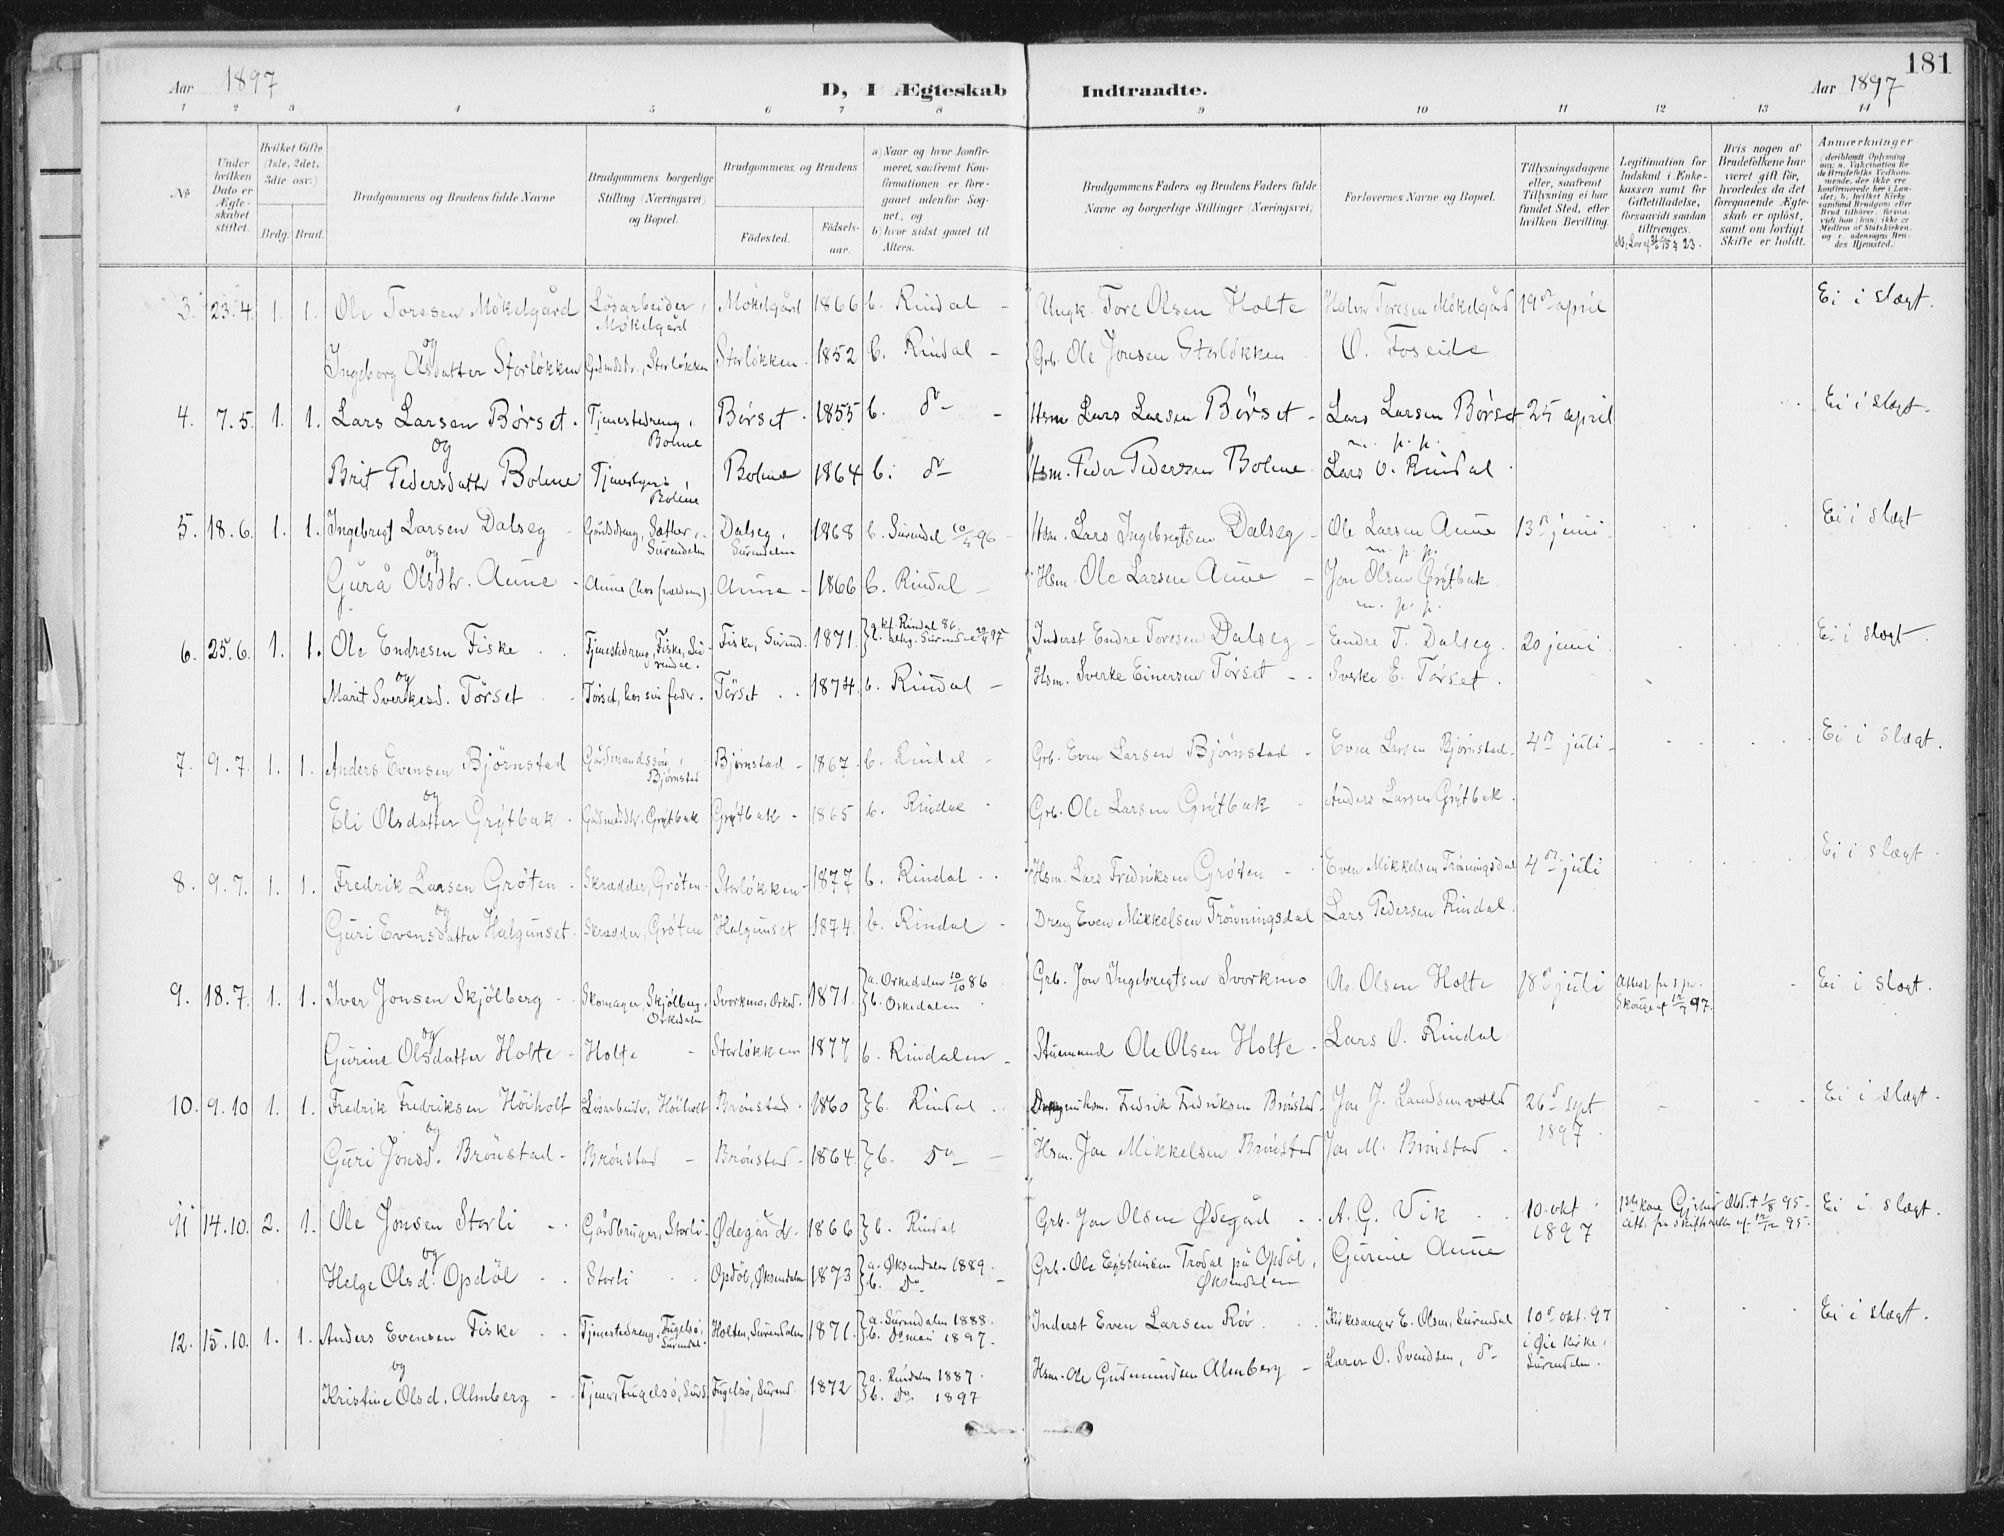 181
Aar 1897 D, I Ægteskab Indtraadte. Aar 1897
1 2 3 4 5 6 7 8 9 10 11 12 13 14
№
Under hvilken Dato er Ægteskabet stiftet.
Hvilket Gifte (1ste, 2det, 3die osv.)
Brdg. Brud.
Brudgommens og Brudens fulde Navne
Brudgommens borgerlige Stilling (Næringsvei) og Bopæl.
Brudgommens og Brudens
Fødested. Fødselsaar.
a) Naar og hvor konfirmeret, saafremt Konfirmationen er foregaaet udenfor Sognet, og
b) hvor sidst gaaet til Alters.
Brudgommens Faders og Brudens Faders fulde Navne og borgerlige Stillinger (Næringsvei)
Forlovernes Navne og Bopæl.
Tillysningsdagene eller, saafremt Tillysning ei har fundet Sted, efter hvilken Bevilling.
Legitimation for Indskud i Enkekassen samt for Giftetilladelse, forsaavidt saadan tiltrænges.
Hvis nogen af Brudefolkene har været gift før, hvorledes da det foregaaende Ægteskab er opløst, samt om lovligt Skifte er holdt.
Anmærkninger
3. 23.4. 1. 1. Ole Toresen Mökelgård Lösarbeider, Mökelgård Mökelgård 1866 b. Rindal – Ungk. Tore Olsen Holte Halvor Toresen Mökelgård 19de april Ei i slægt.
og
Ingeborg Olsdatter Storløkken Grdmdtr., Storløkken Storløkken. 1852 b. Rindal – Grb. Ole Jonsen Storløkken O. Foseide
4. 7.5. 1. 1. Lars Larsen Børset. Tjenestedreng, Bolme Børset. 1855 b. do – Hsm. Lars Larsen Børset – Lars Larsen Børset 25 april Ei i slægt.
og m. p. p.
Brit Pedersdattr Bolme Bolme Bolme 1864 b. do Hsm. Peder Pedersen Bolme. Lars O. Rindal.
5. 18.6. 1. 1. Ingebrigt Larsen Dalseg – Gårdsdreng, Sætter, Surendalen Dalseg, Surendalen 1868 b. Surendal 10/5 96 – Hsm. Lars Ingebrigtsen Dalseg – Ole Larsen Aune 13de juni. Ei i slægt
og m. p. p.
Gurå Olsdtr. Aune – Aune (hos forældrene). Aune – 1866 b. Rindal – Hsm. Ole Larsen Aune – Jon Olsen Grytbak
m. p. p.
6. 25.6. 1. 1. Ole Endresen Fiske Tjenestedreng, Fiske, Surendal. Fiske, Surend. 1871. a. kf. Rindal 86. Inderst Endre Toresen Dalseg – Eendre T. Dalseg. 20 juni Ei i slægt.
og
Marit Sverkesd. Tørset Tørset, hos sin fader. Tørset 1874. b. Rindal – Hsm. Sverke Einersen Tørset – Sverke E. Tørset.
7. 9.7. 1. 1. Anders Evensen Bjørnstad Gårdmandssøn, Bjørnstad Bjørnstad – 1867. b. Rindal – Grb. Even Larsen Bjørnstad – Even Larsen Bjørnstad – 4de juli – Ei i slægt.
og
Eli Olsdatter Grytbak – Gårdmdtr. Grytbak Grytbak – 1865 b. Rindal Grb. Ole Larsen Grytbak Anders Larsen Grytbak.
8. 9.7. 1. 1. Fredrik Larsen Grøten – Skrædder, Grøten. Storløkken – 1877 b. Rindal Hsm. Lars Fredriksen Grøten – Even Mikkelsen Trønningsdal 4de juli Ei i slægt.
og
Guri Evensdatter Halgunset. Skrædder, Grøten Halgunset 1874. b. Rindal – Dreng Even Mikkelsen Trønningsdal Lars Pedersen Rindal.
9. 18.7. 1. 1. Iver Jonsen Skjølberg – Skomager, Skjølberg, Orkedalen Svorkmo, Orked. 1871. a. Orkedalen 10/10 86 b. Orkedalen. Grb. Jon Ingebregtsen Svorkmo Ole Olsen Holte 18de juli Attest fra s.pr. Skouge af 12/7 97. Ei i slægt.
og
Gurine Olsdatter Holte – Holte – Storløkken 1877 b. Rindalen – Stuemand Ole Olsen Holte. Lars O. Rindal
10. 9.10. 1. 1. Fredrik Fredriksen Höiholt Lösarbeider, Höiholt Brønstad. 1860 b. Rindal Fredrik Fredriksen Brønstad – Jon J. Landsemvold 26de sept 1897. Ei i slægt.
og
Guri Jonsd. Brønstad – Brønstad – Brønstad – 1864. b. Do – Hsm. Jon Mikkelsen Brønstad Jon M. Brønstad.
11 14.10. 2. 1. Ole Jonsen Storli Gårdbruger, Storli – Ødegård. 1866 b. Rindal Grb. Jon Olsen Ødegård A. G. Vik 10. okt 1897 1ste kone Gjertrud Olsd. † 1/8 95 – att. fra skifteretten af 12/12 95. Ei i slægt.
og
Helge Olsd. Opdöl Storli Opdöl, Øksendalen 1873 a. Øksendalen 1889. b. Do Grb. Ole Eysteinsen Trodal på Opdöl, Øksendalen Gurine Aune
12. 15.10. 1. 1. Anders Evensen Fiske Tjenestedreng, Fugelsø, Surendal. Holten, Surendalen 1871. a. Surendalen 1888. b. Do mai 1897. Inderst Even Larsen Røv Kirkesanger E. Olsen, Surendal 10de okt. 97 i Øie kirke, Surendalen. Ei i slægt.
og
Kristine Olsd. Almberg – Tjener, Fugelsø, Surd. Fugelsø, Surend. 1872 a. Rindalen 1887. b. Do 1897 Hsm. Ole Gudmundsen Almberg – Lærer O. Svendsen, do –